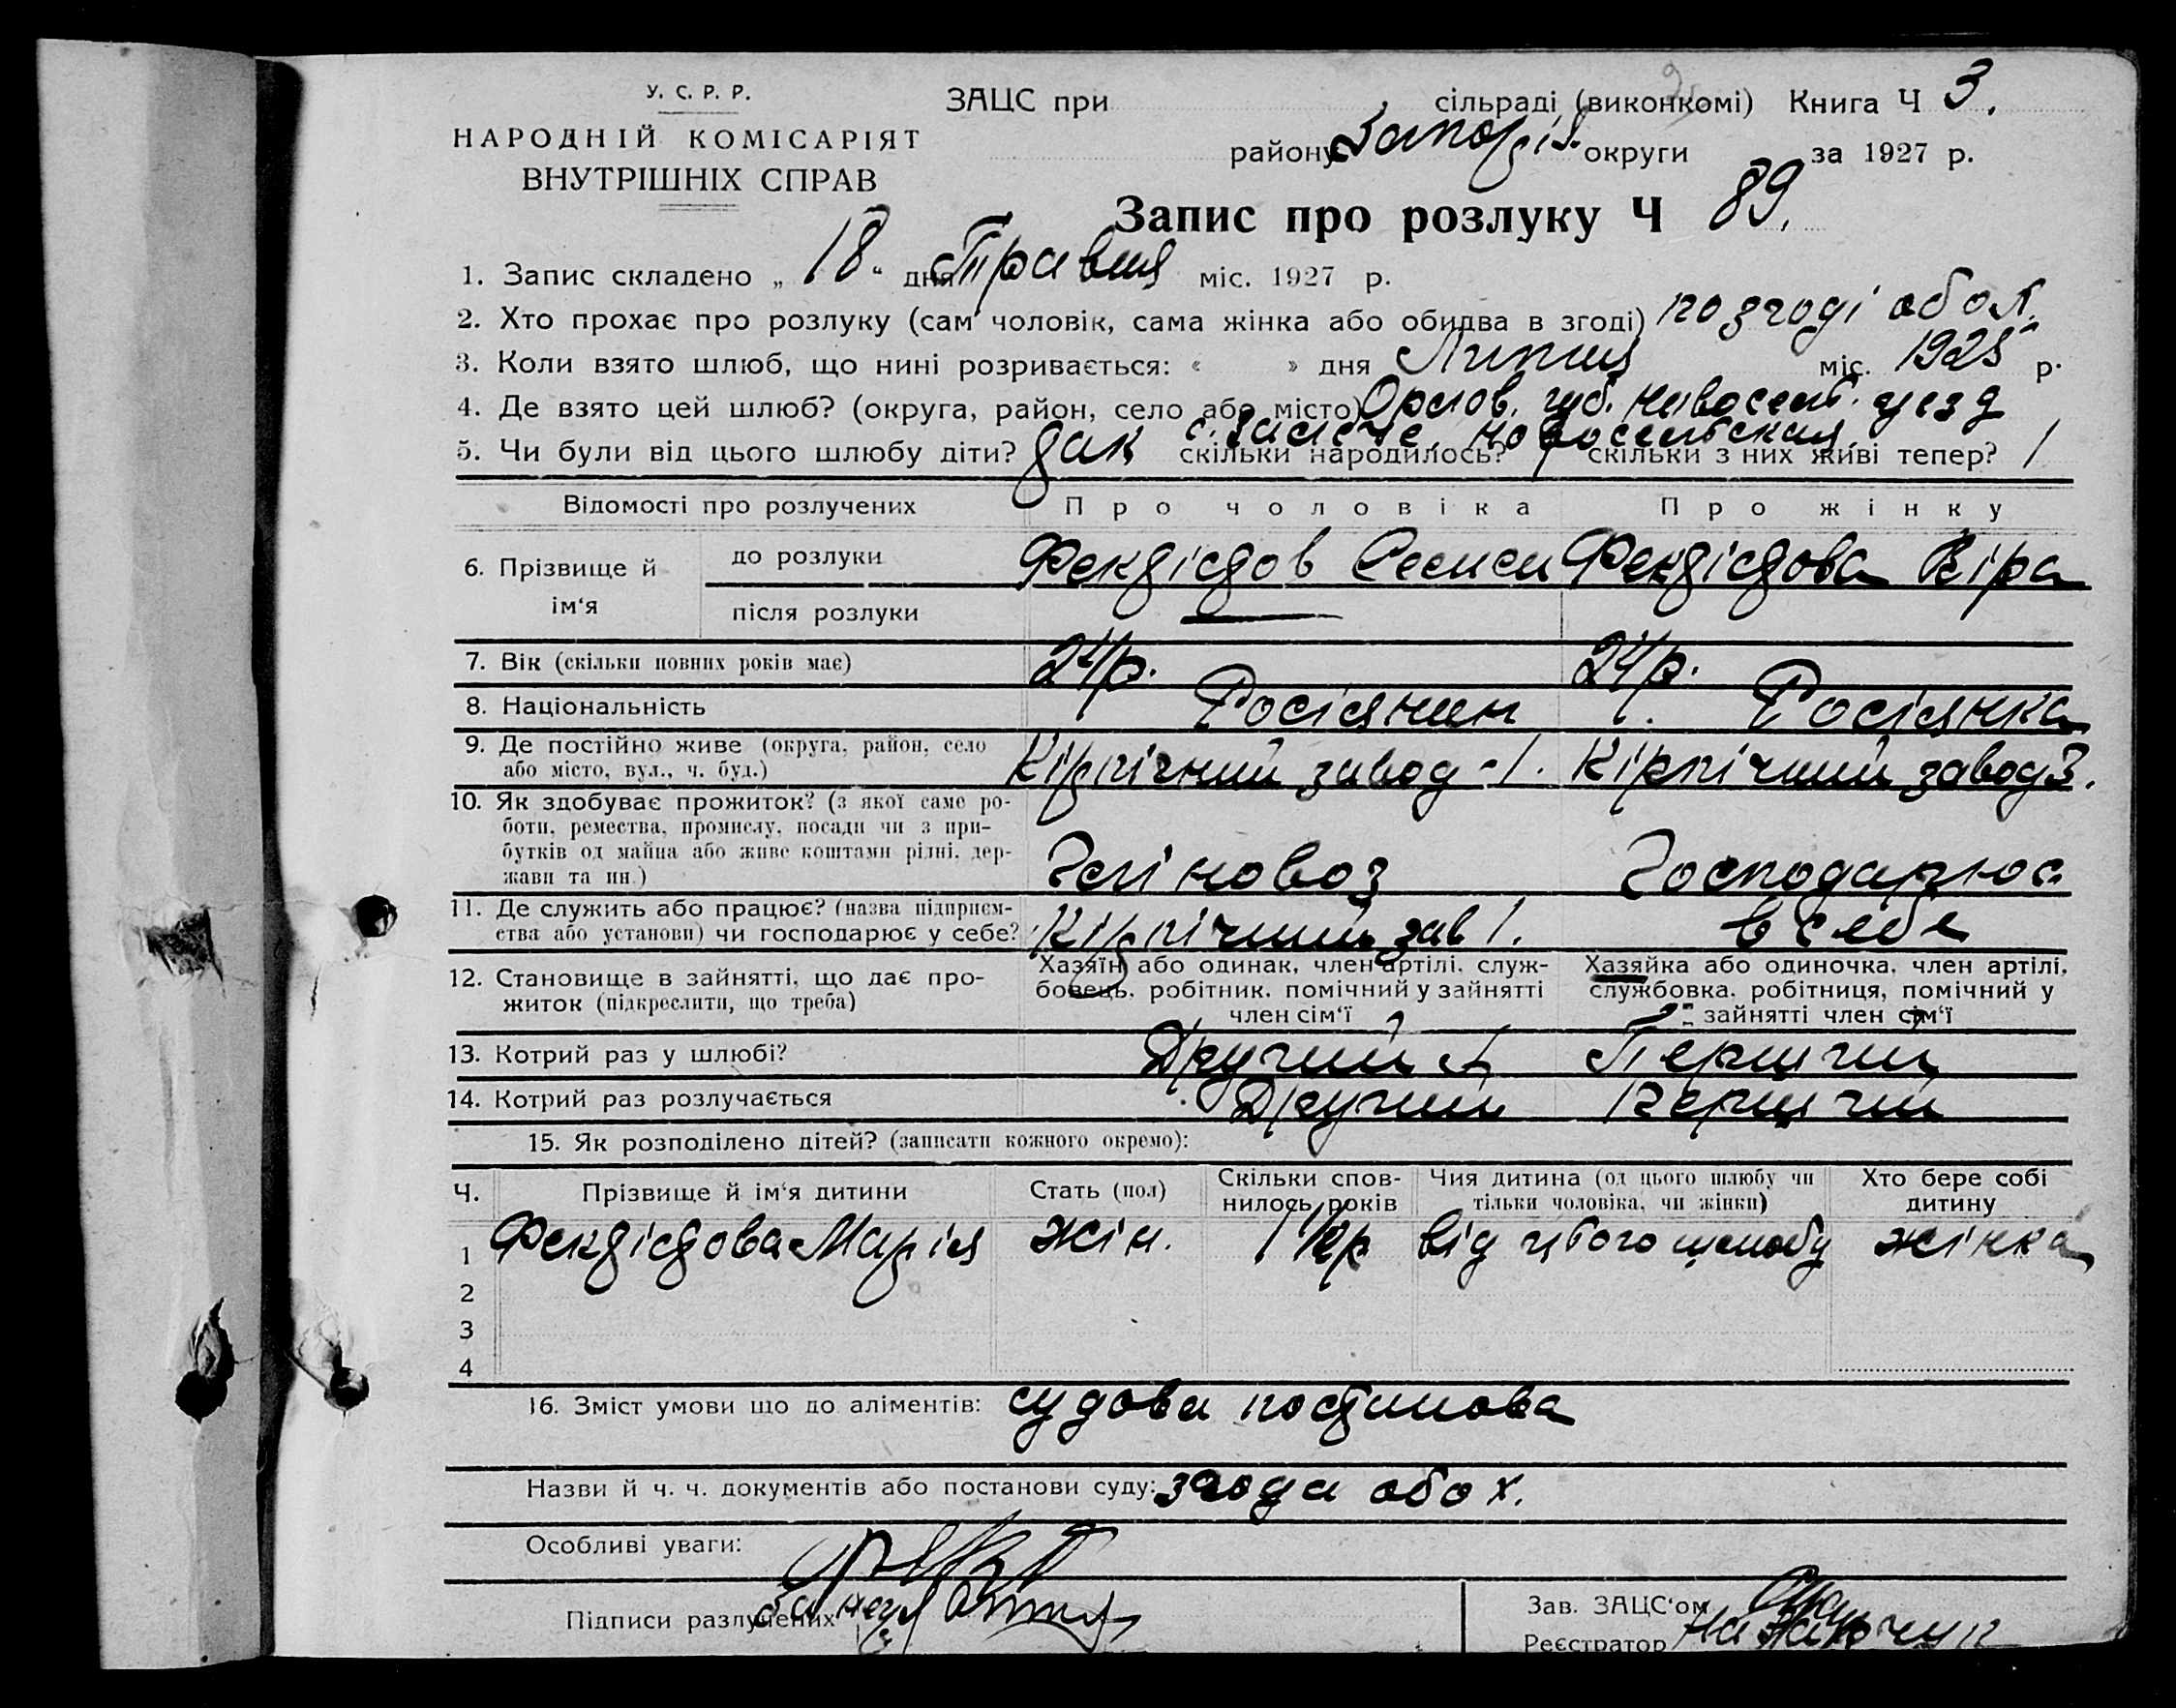 У. С. Р. Р.
НАРОДНІЙ КОМІСАРІЯТ
ВНУТРІШНІХ СПРАВ
ЗАЦС при сільраді (виконкомі) Книга Ч 3.
району округи за 1927 р.
Запис про розлуку Ч 89.
1. Запис складено „ 18 “ дня Травня міс. 1927 р.
2. Хто прохає про розлуку (сам чоловік, сама жінка або обидва в згоді) по згоді обох.
3. Коли взято шлюб, що нині розривається: « » дня Липня міс. 1925 р.
4. Де взято цей шлюб? (округа, район, село або місто) Орлов. губ. уезд
5. Чи були від цього шлюбу діти? так скільки народилось? 1 скільки з них живі тепер? 1
Відомості про розлучених Про чоловіка Про жінку
6. Прізвище й ім‘я
до розлуки Віра
після розлуки
7. Вік (скільки повних років має) 24 р. 24 р.
8. Національність Росіянин Росіянка
9. Де постійно живе (округа, район, село
або місто, вул., ч. буд.) Кірпічний завод - 1. Кірпічний завод 3.
10. Як здобуває прожиток? (з якої саме ро-
боти, ремества, промислу, посади чи з при-
бутків од майна або живе коштами рідні, дер-
жави та ин.) Гліновоз
11. Де служить або працює? (назва підприєм-
ства або установи) чи господарює у себе? Кірпічний зав 1. в себе
12. Становище в зайнятті, що дає про-
житок (підкреслити, що треба)
Хазяїн або одинак, член артілі, служ-
бовець, робітник, помічний у зайнятті
член сім‘ї
Хазяйка або одиночка, член артілі,
службовка, робітниця, помічний у
зайнятті член сім‘ї
13. Котрий раз у шлюбі?
14. Котрий раз розлучається
15. Як розподілено дітей? (записати кожного окремо):
Ч. Прізвище й ім‘я дитини Стать (пол) Скільки спов-
нилось років Чия дитина (од цього шлюбу чи
тільки чоловіка, чи жінки) Хто бере собі
дитину
1 Марія жін. 1 1/2 р від цього шлюбу жінка
2
3
4
16. Зміст умови що до аліментів: судова постанова
Назви й ч. ч. документів або постанови суду: згода обох.
Особливі уваги:
Підписи разлучених
Зав. ЗАЦС‘ом
Реєстратор